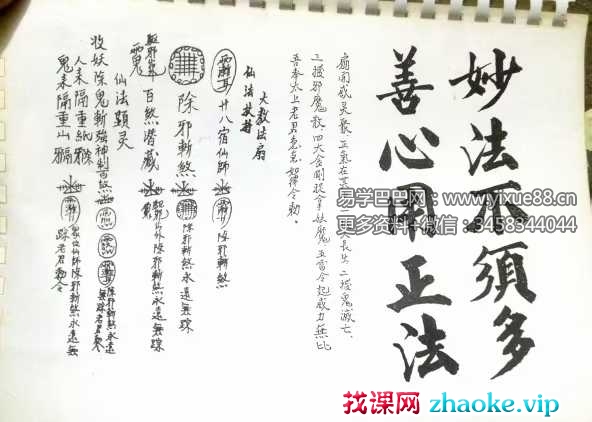 妙法不須多
善心用正法
扇開威灵 正氣在
二揺鬼滅亡、
三揺邪魔散 四大金剛 拿妖魔 五雷令起威力無比
吾奉太上老君 如律令勅。
大教法扇
仙法扶持
廿八宿仙師 除邪斬煞
除邪斬煞 除邪斬煞永遠無踪
百煞潜藏 除邪斬煞永遠無踪
仙法顕灵
收妖除鬼斬 百煞 除邪斬煞永遠
人來隔重紙
鬼來隔重山 除邪斬煞永遠無
踪老君勅令
易学巴巴网：www.yixue88.cn
更多资料+微信：3458344044
找课网 zhaoke.vip